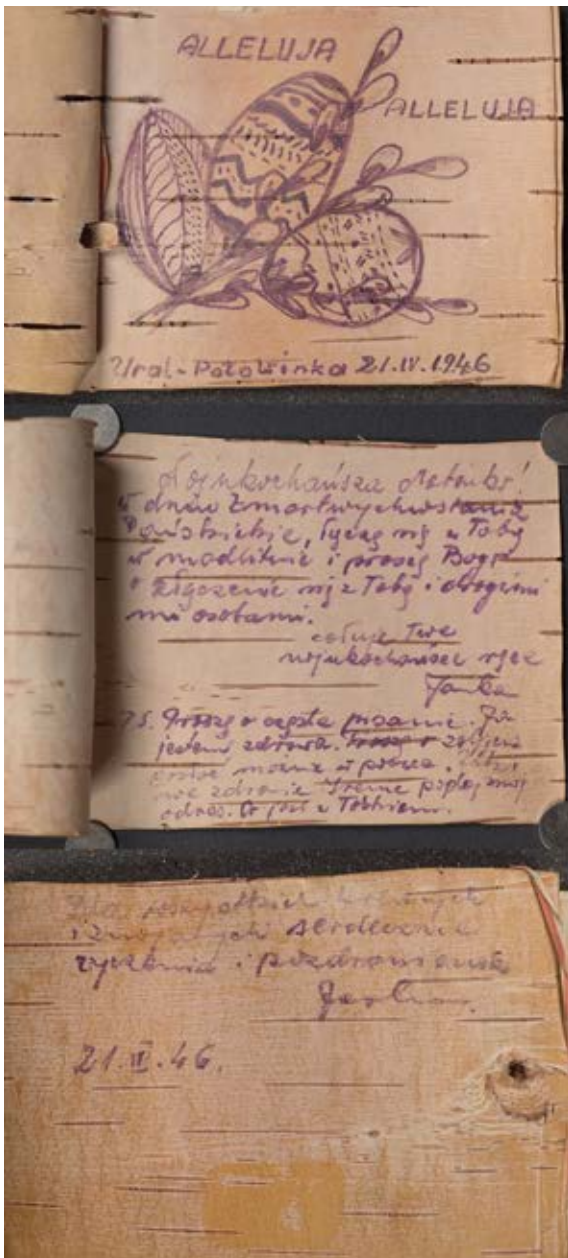 ALLELUJA
ALLELUJA
Ural-Połowinka 21.IV.1946
Najukochańsza Mateńko!
W dniu Zmartwychwstania
Pańskiego, łączę się z Tobą
w modlitwie i proszę Boga
o złączenie się z Tobą i drogimi
mi osobami.
całuję Twe
najukochańsze ręce
Janka
PS. Proszę o częste pisanie. Ja
jestem zdrowa. Proszę o zdjęcia
można w
zdrowie Irenie podaj mój
adres. Co jest z
Dla wszystkich krewnych
i znajomych serdeczne
życzenia i pozdrowienia
21.III.46.